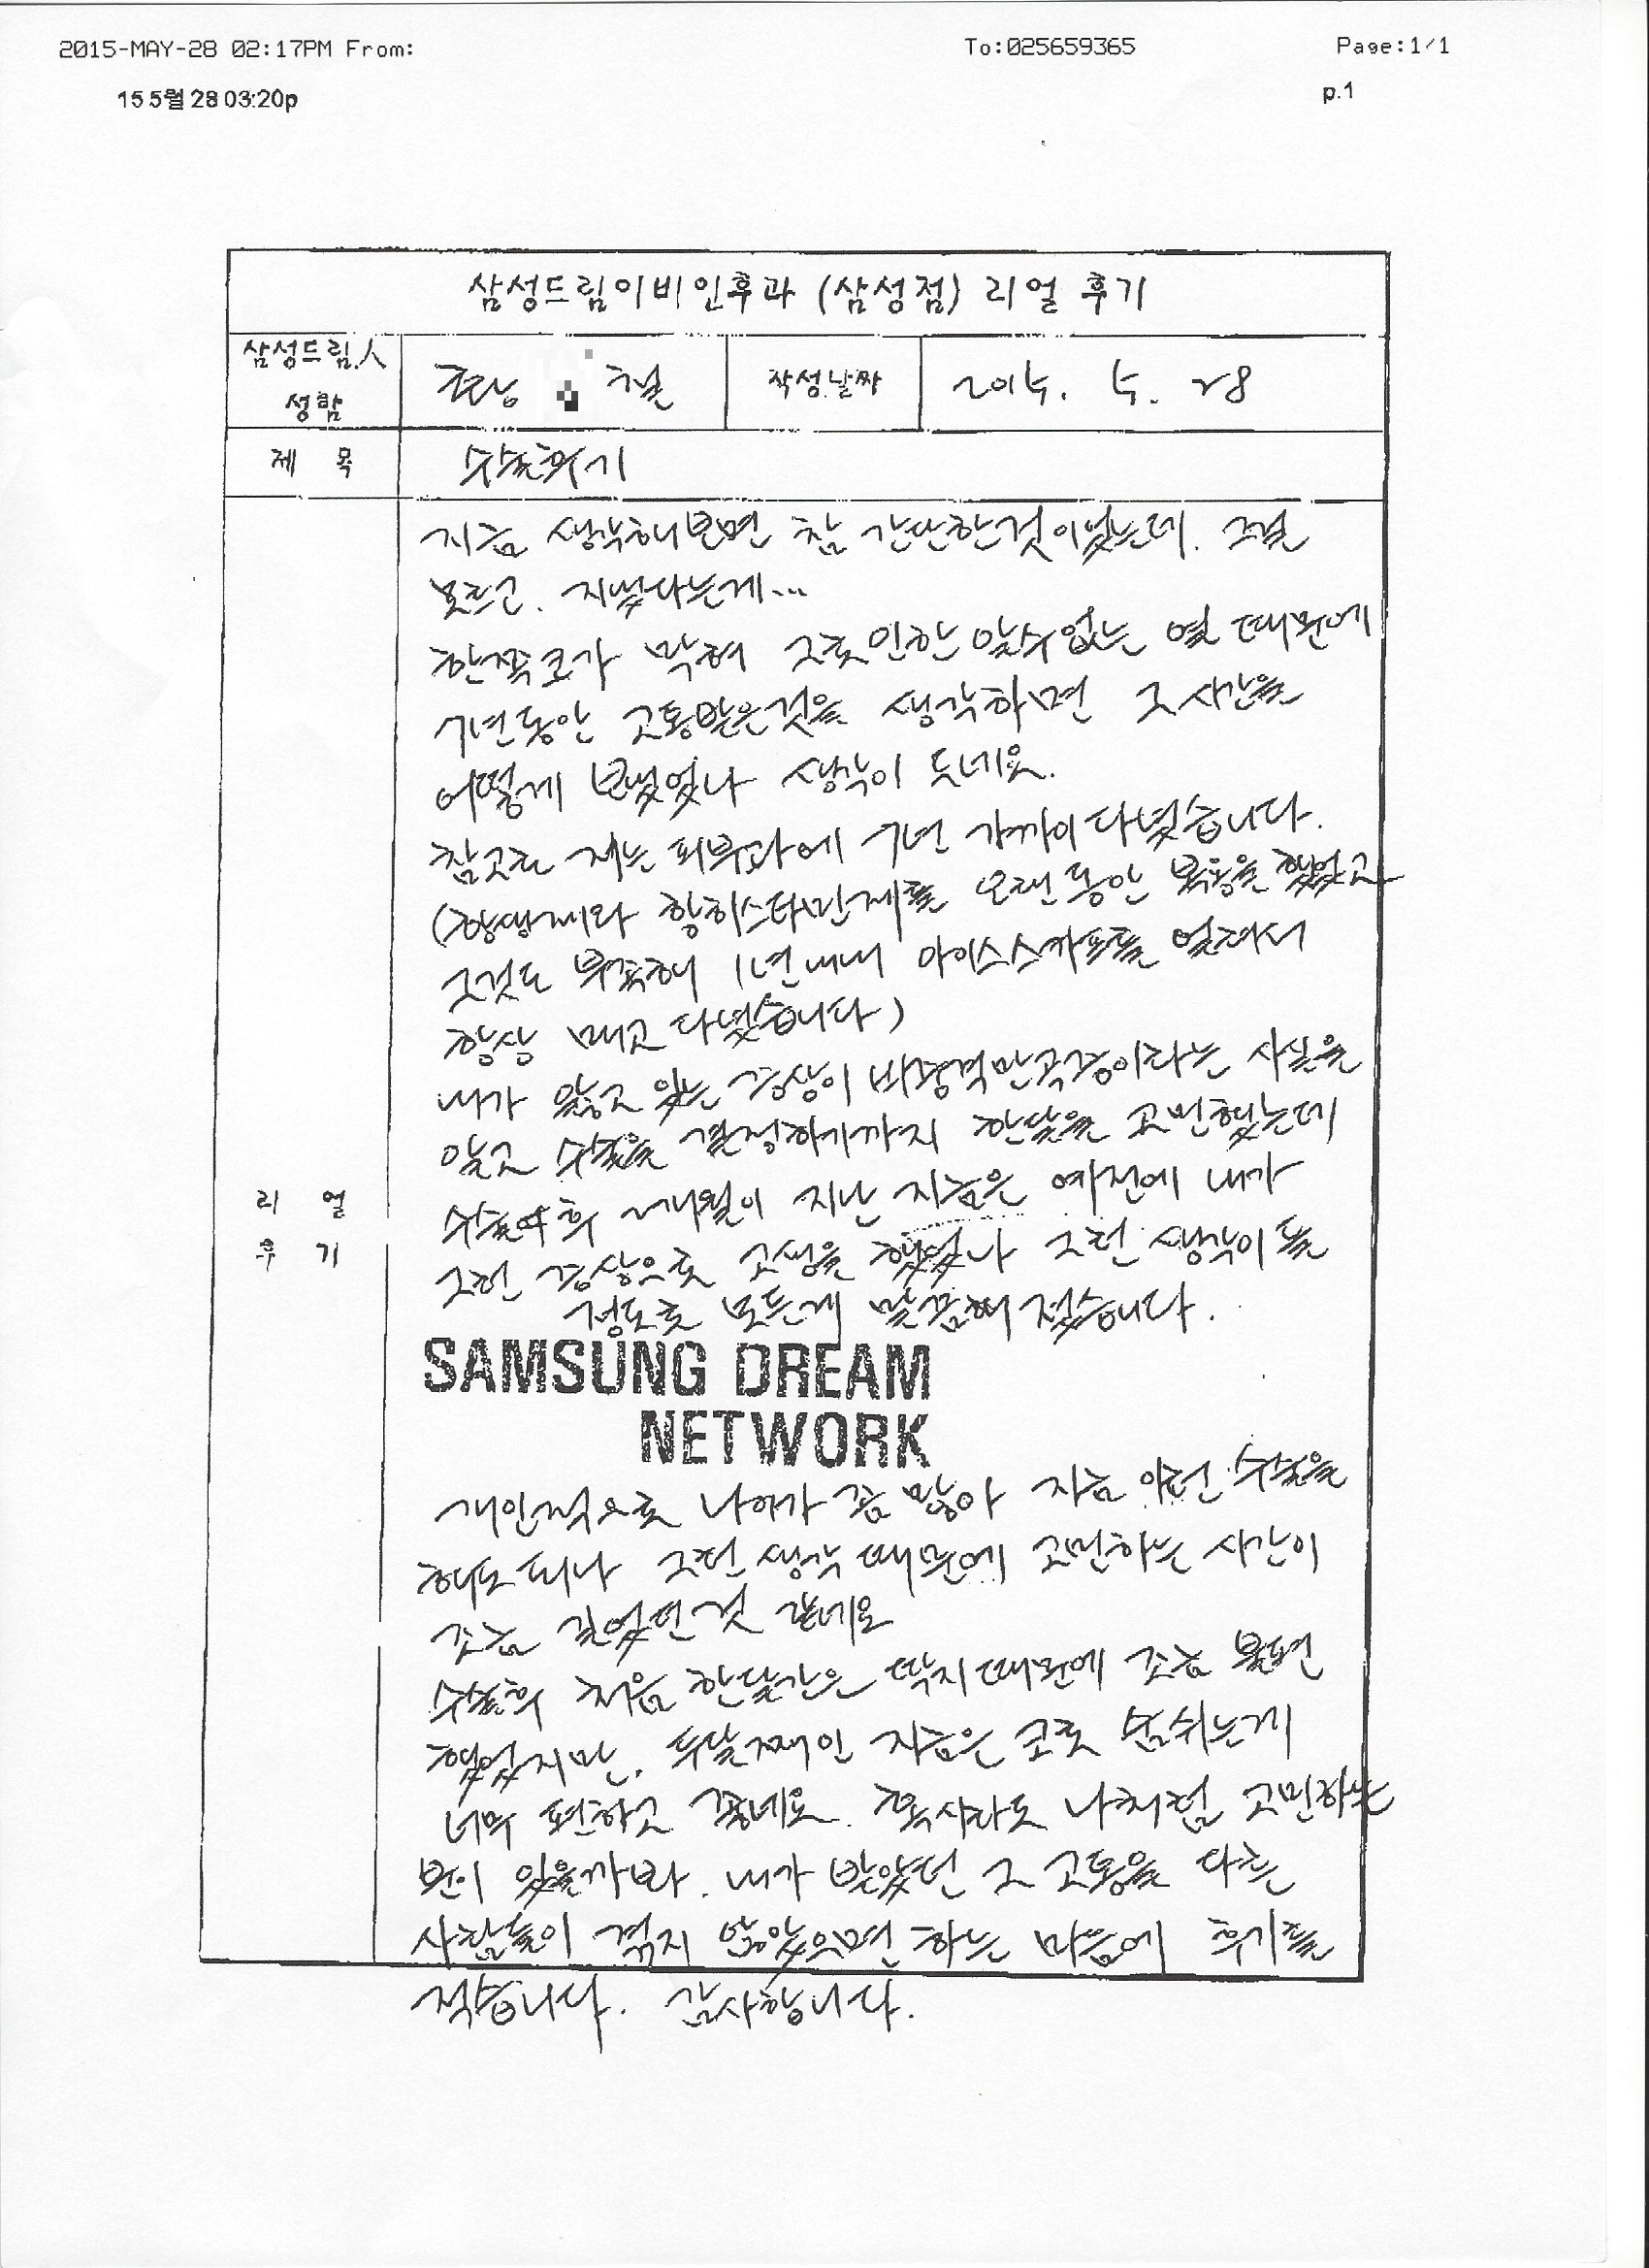 2015-MAY-28 02:17PM From: To:025659365 Page:1/1
15 5월 28 03:20p p.1
삼성드림이비인후과 (삼성점) 리얼 후기
삼성드림人
성함
철
작성날짜
2015. 5. 28
제 목
수술후기
지금 생각해보면 참 간단한것이었는데. 그걸
모르고. 지냈다는게...
한쪽코가 막혀 그로인한 알수없는 열 때문에
7년동안 고통받은것을 생각하면 그 시간을
어떻게 보냈었나 생각이 드네요.
참고로 저는 피부과에 7년 가까이 다녔습니다.
(항생제와 항히스타민제를 오랜동안 복용을 했었고
그것도 부족해 1년내내 아이스스카프를 얼려서
항상 매고 다녔습니다)
내가 앓고 있는 증상이 비중격만곡증이라는 사실을
알고 수술을 결정하기까지 한달을 고민했는데
수술이후 2개월이 지난 지금은 예전에 내가
그런 증상으로 고생을 했었나 그런 생각이 들
정도로 모든게 말끔해 졌습니다.
SAMSUNG DREAM
NETWORK
개인적으로 나이가 좀 많아 지금 이런 수술을
해도 되나 그런 생각 때문에 고민하는 시간이
조금 길었던것 같네요
수술후 처음 한달간은 딱지때문에 조금 불편
했었지만. 두달째인 지금은 코로 숨쉬는게
너무 편하고 좋네요. 혹시라도 나처럼 고민하는
분이 있을까봐. 내가 받았던 그 고통을 다른
사람들이 겪지 않았으면 하는 마음에 후기를
적습니다. 감사합니다.
리 얼
후 기